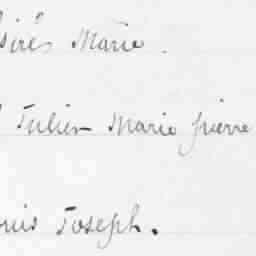 sirée Marie.
Julien Marie pierre
ouis Joseph.